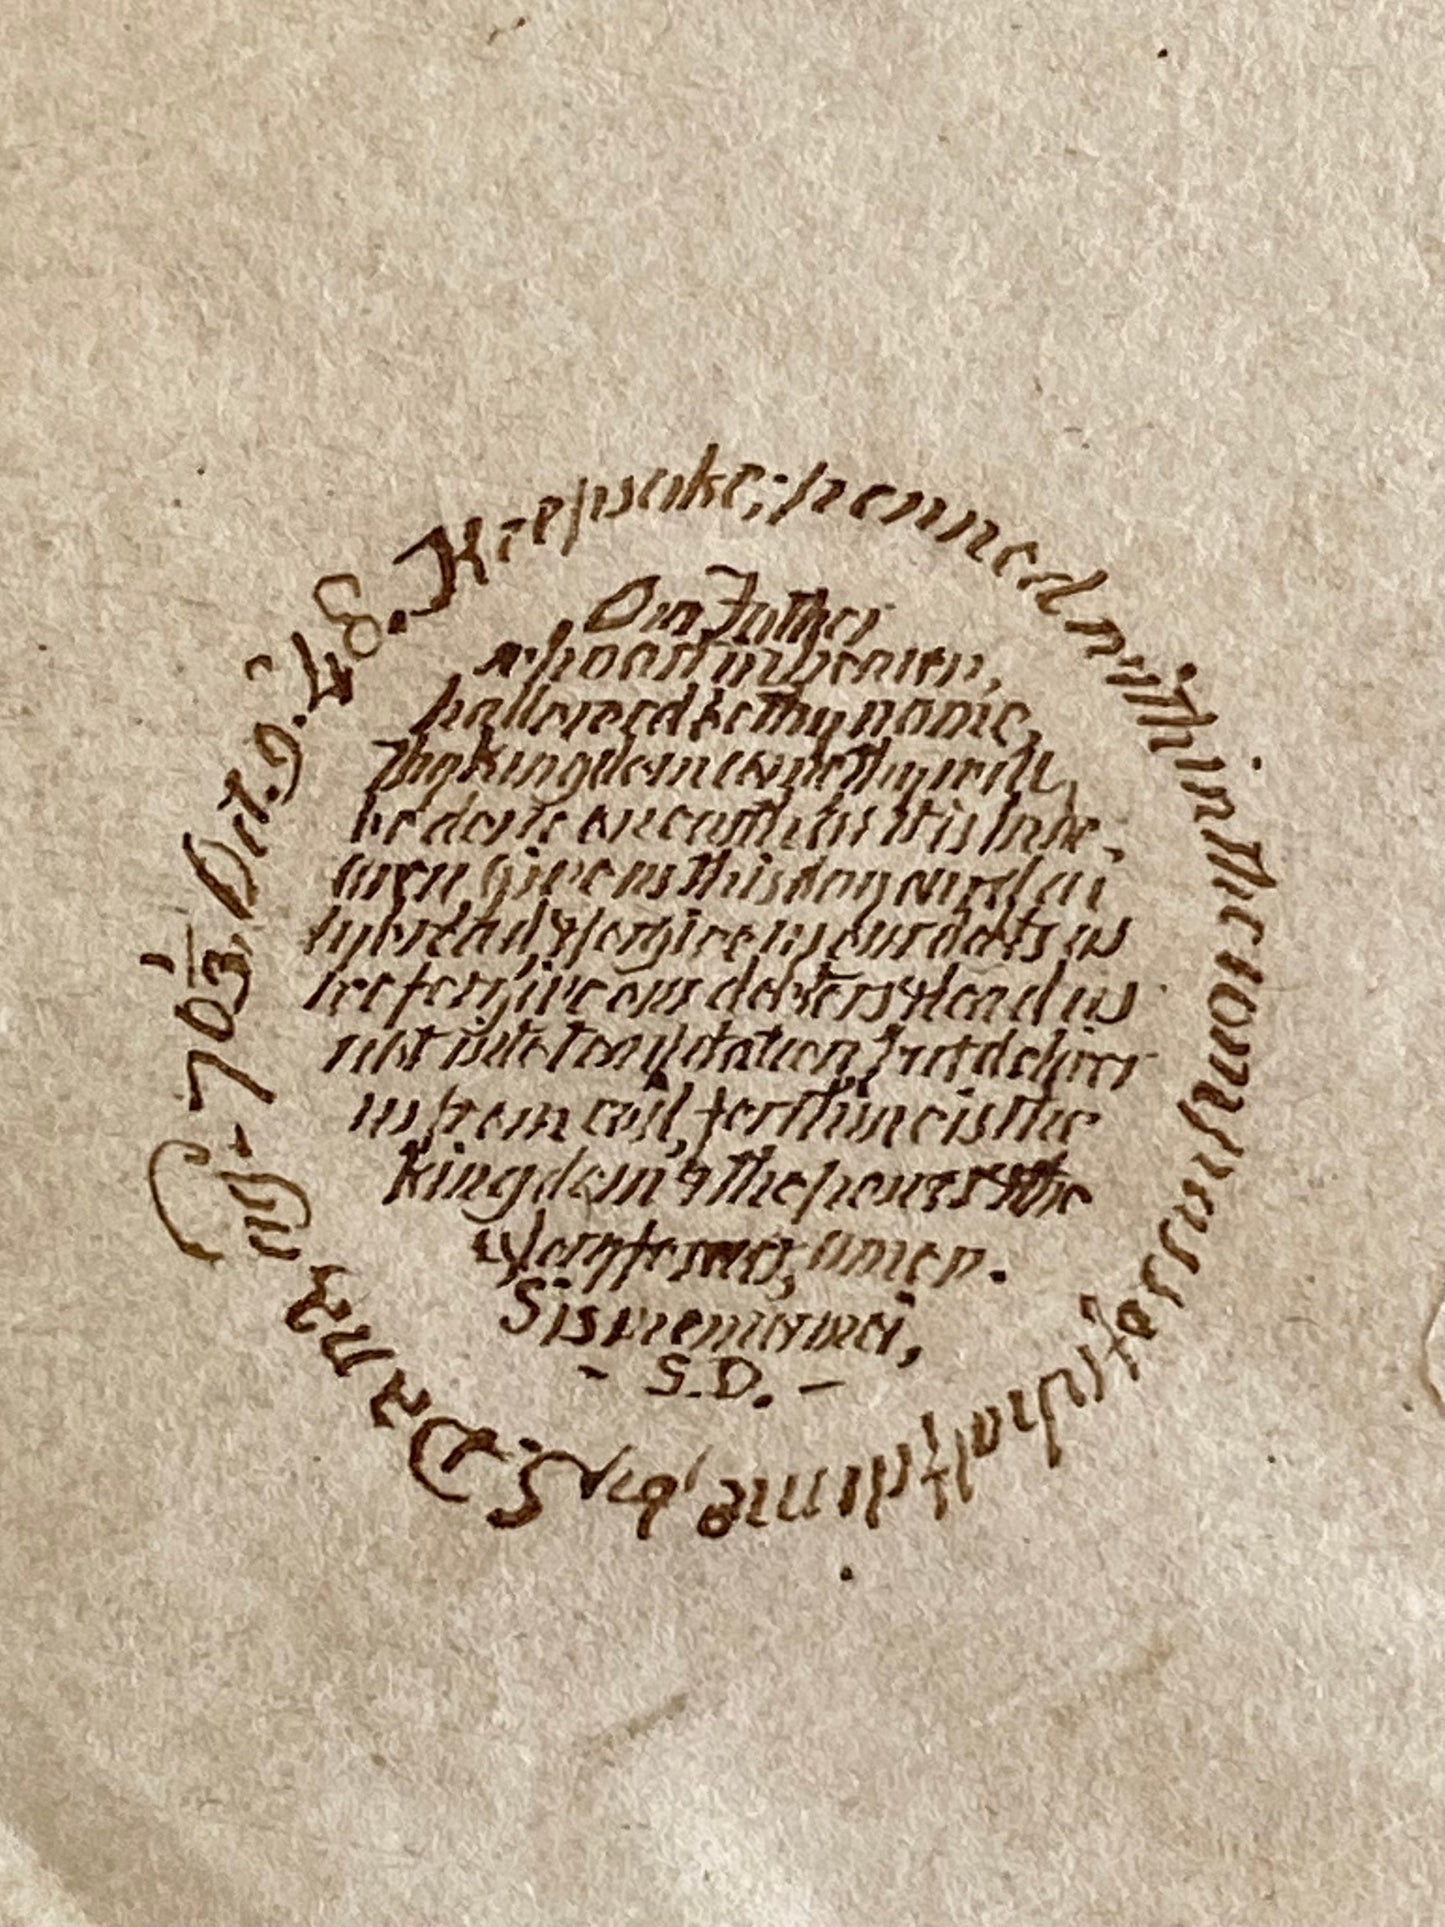 A Keepsake; penned within the compass of what time, by S. Dewey, Æ. 70 1/3, Oct. 9. '48.
Our Father
who art in heaven,
hallowed be thy name,
Thy kingdom come thy will,
be done on earth as it is in he-
aven, give us this day our dai
ly bread, & forgive us our debts as
we forgive our debters & lead us
not into temptation, but deliver
us from evil, for thine is the
kingdom & the power & the
glory forever, amen.
Sis memor mei,
- S.D. -